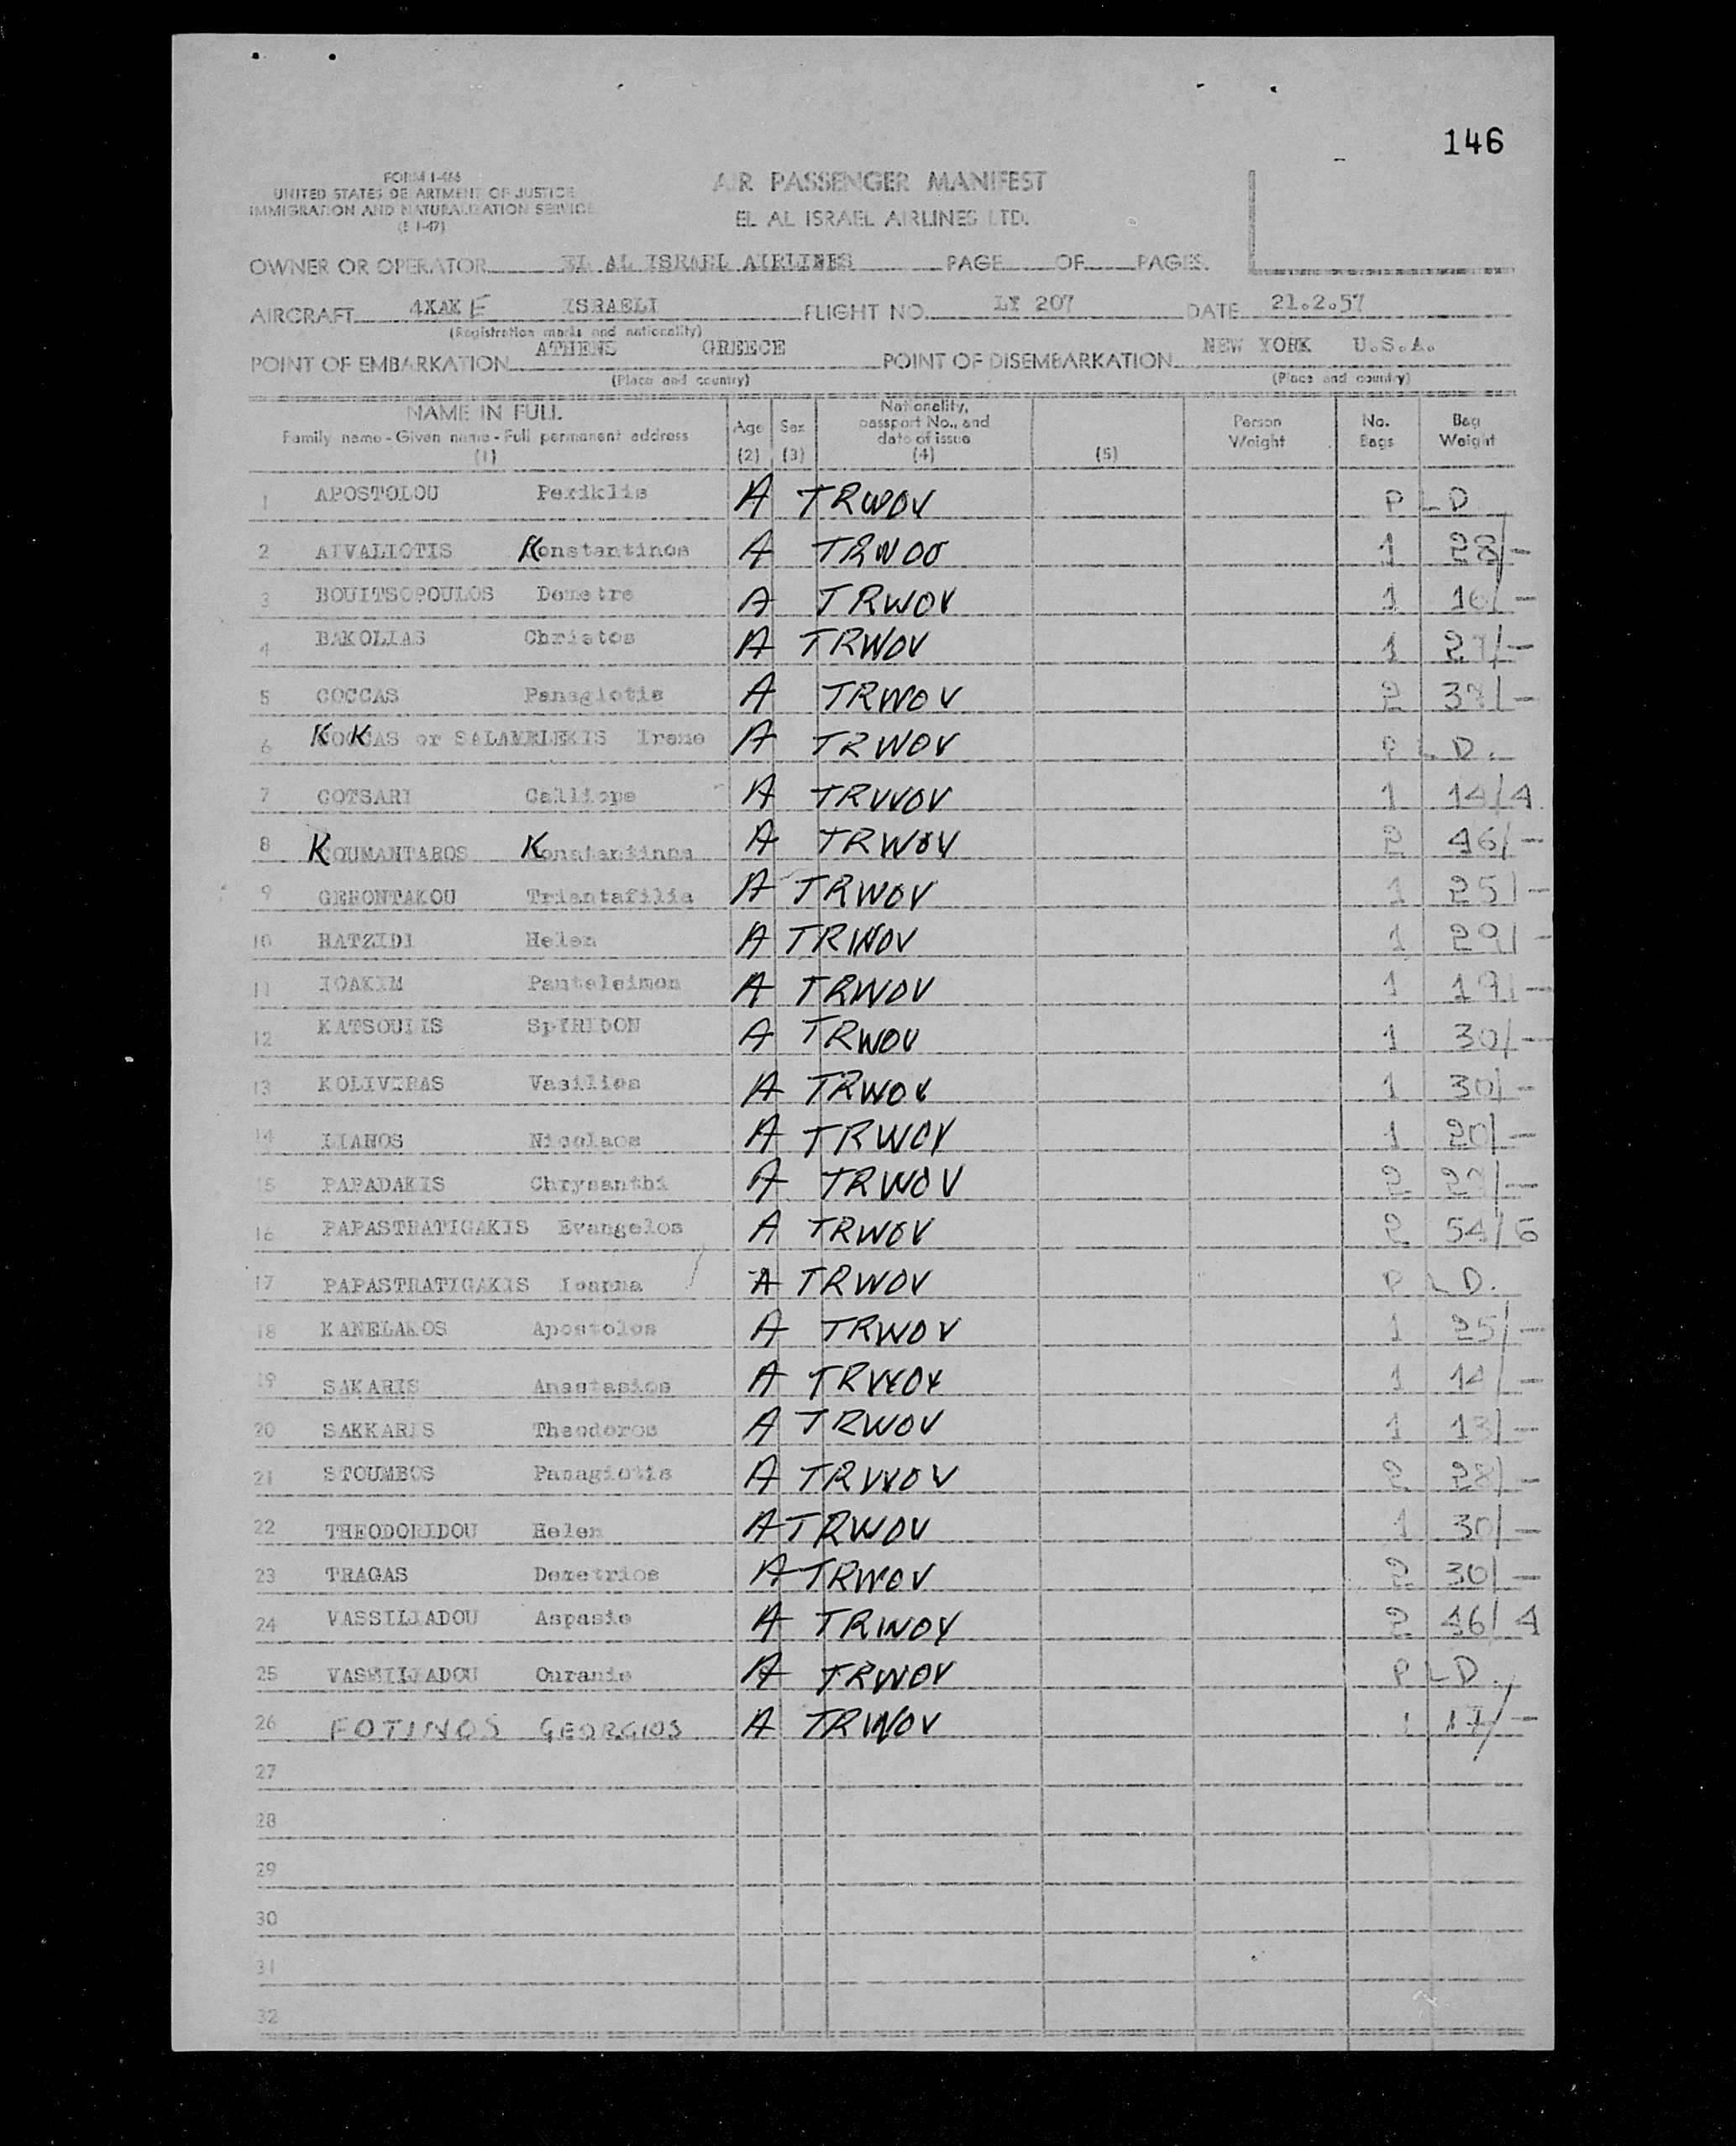 146
FORM I-466
UNITED STATES DEPARTMENT OF JUSTICE
IMMIGRATION AND NATURALIZATION SERVICE
AIR PASSENGER MANIFEST
EL AL ISRAEL AIRLINES LTD.
OWNER OR OPERATOR EL AL ISRAEL AIRLINES PAGE OF PAGES
AIRCRAFT 4XAK E ISRAELI FLIGHT NO. LY 207 DATE 21.2.57
(Registration marks and nationality)
POINT OF EMBARKATION ATHENS GREECE POINT OF DISEMBARKATION NEW YORK U.S.A.
(Place and country) (Place and country)
NAME IN FULL
Family name - Given name - Full permanent address
(1)
Age (2) Sex (3) Nationality, passport No., and date of issue (4) (5) Person Weight No. Bags Bag Weight
1 APOSTOLOU Periklis A TRWOV P L D
2 AIVALIOTIS Konstantinos A TRWOV 1 28/-
3 BOUITSOPOULOS Demetre A TRWOV 1 16/-
4 BAKOLIAS Christos A TRWOV 1 27/-
5 COCCAS Panagiotis A TRWOV 2 38/-
6 KOKCAS or SALAMELEKIS Irene A TRWOV P L D.
7 COTSARI Calliope A TRWOV 1 14/4
8 KOUMANTAROS Konstantinna A TRWOV 2 46/-
9 GERONTAKOU Triantafilia A TRWOV 1 25/-
10 HATZIDI Helen A TRWOV 1 29/-
11 IOAKIM Panteleimon A TRWOV 1 19/-
12 KATSOULIS SpYRIDON A TRWOV 1 30/-
13 KOLIVERAS Vasilios A TRWOV 1 30/-
14 LIANOS Nicolaos A TRWOV 1 20/-
15 PAPADAKIS Chrysanthi A TRWOV 2 /-
16 PAPASTRATIGAKIS Evangelos A TRWOV 2 54/6
17 PAPASTRATIGAKIS Ioanna A TRWOV P L D.
18 KANELAKOS Apostolos A TRWOV 1 25/-
19 SAKARIS Anastasios A TRWOV 1 14/-
20 SAKKARIS Theodoros A TRWOV 1 13/-
21 STOUMBOS Panagiotis A TRWOV 2 28/-
22 THEODORIDOU Helen A TRWOV 1 30/-
23 TRAGAS Demetrios A TRWOV 2 30/-
24 VASSILIADOU Aspasia A TRWOV 2 46/4
25 VASSILIADOU Ourania A TRWOV P L D.
26 FOTINOS GEORGIOS A TRWOV 1 17/-
27
28
29
30
31
32